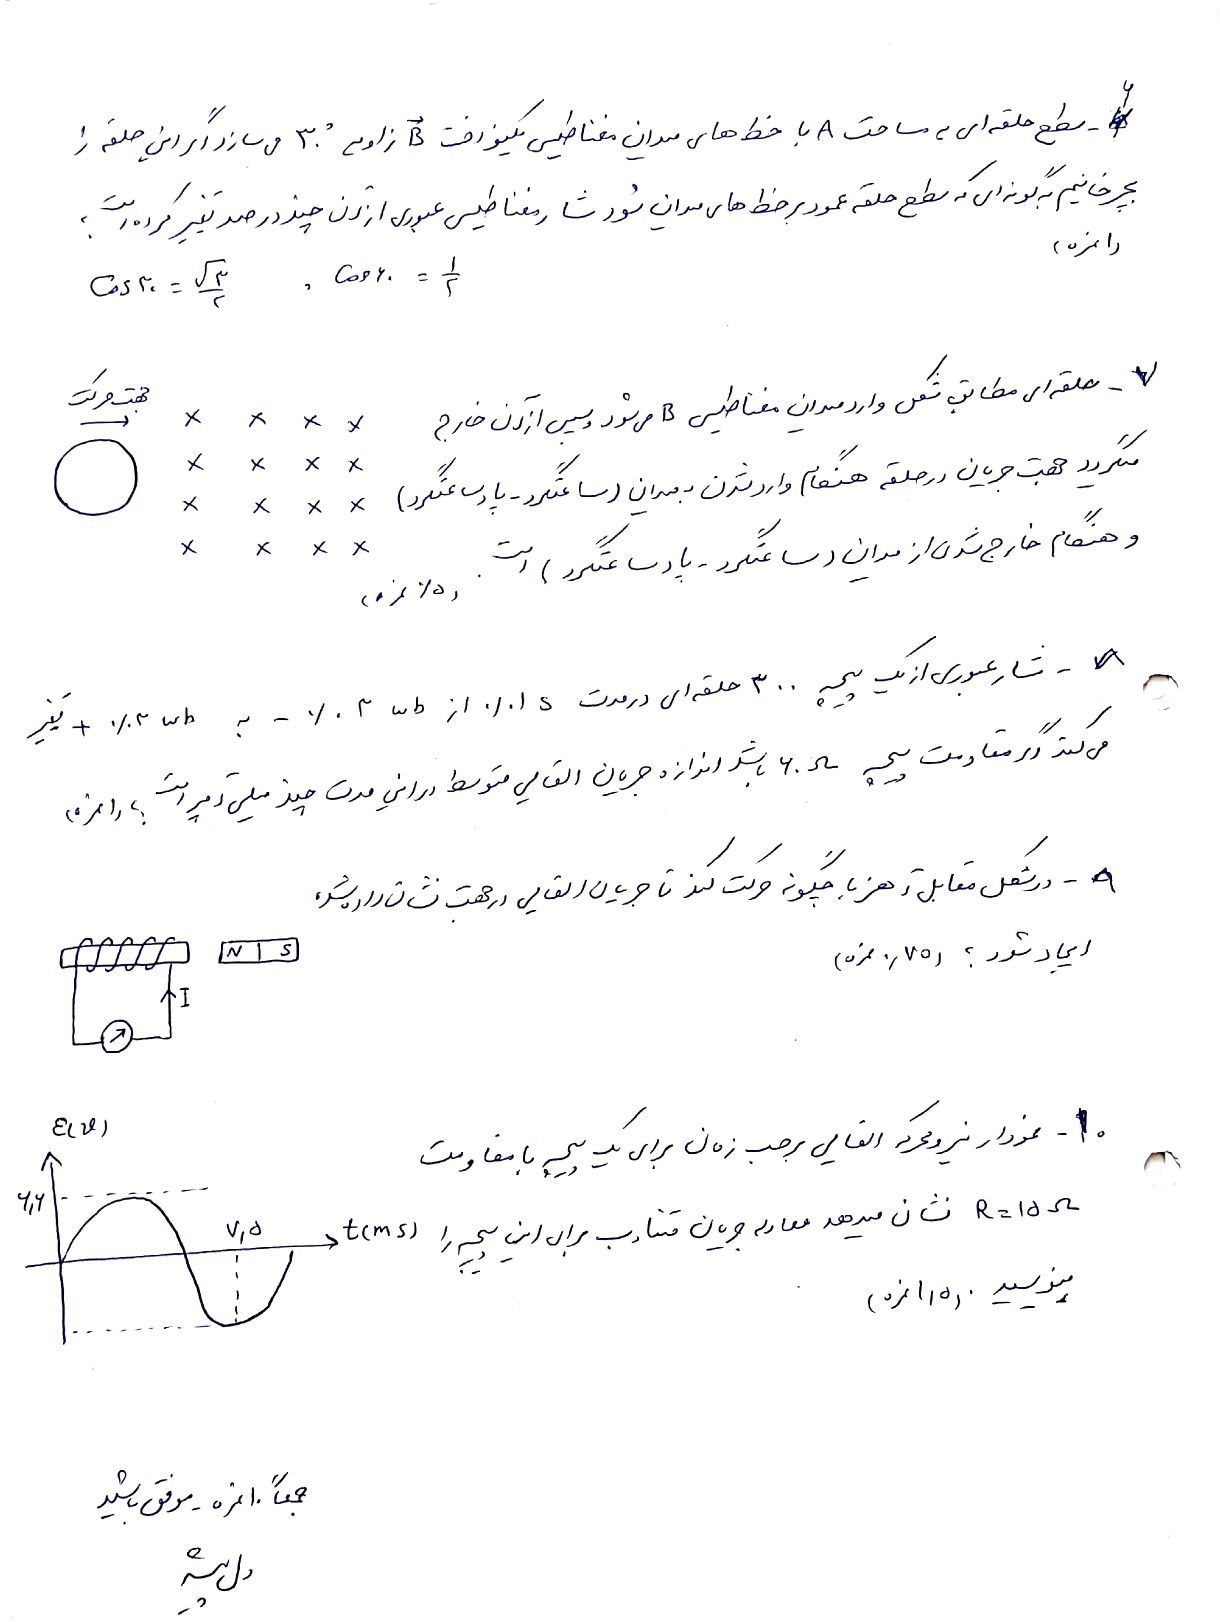 ۶- سطح حلقه ای به مساحت A با خط های میدان مغناطیسی یکنواخت B زاویه ۳۰° می سازد اگر این حلقه را
بچرخانیم به گونه ای که سطح حلقه عمود بر خط های میدان شود شار مغناطیسی عبوری از آن چند درصد تغییر کرده است؟
(۱ نمره)
Cos ۳۰ = √۳/۲ , Cos ۶۰ = ۱/۲
۷- حلقه ای مطابق شکل وارد میدان مغناطیسی B می شود و سپس از آن خارج
میگردد جهت جریان در حلقه هنگام وارد شدن به میدان (ساعتگرد - پادساعتگرد)
و هنگام خارج شدن از میدان (ساعتگرد - پادساعتگرد) است. (۰/۵ نمره)
جهت حرکت
× × × ×
× × × ×
× × × ×
× × × ×
۸- شار عبوری از یک پیچه ۳۰۰ حلقه ای در مدت ۰/۱ s از ۰/۰۳ wb - به ۰/۰۳ wb + تغییر
می کند اگر مقاومت پیچه ۶۰ Ω باشد اندازه جریان القایی متوسط در این مدت چند میلی آمپر است؟ (۱ نمره)
۹- در شکل مقابل آهنربا چگونه حرکت کند تا جریان القایی در جهت نشان داده شده
ایجاد شود؟ (۰/۷۵ نمره)
N S
I
۱۰- نمودار نیرو محرکه القایی برحسب زمان برای یک پیچه با مقاومت
R=۱۵ Ω نشان میدهد معادله جریان متناوب برای این پیچه را
بنویسید. (۱/۵ نمره)
ε(v)
۶,۶
۷,۵
t(ms)
جمعاً ۱۰ نمره - موفق باشید
دل پیشه